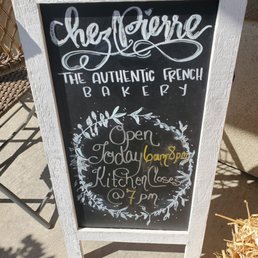 Chez Pierre
THE AUTHENTIC FRENCH
BAKERY
Open
Today 6am8pm
Kitchen Closes
@ 7pm